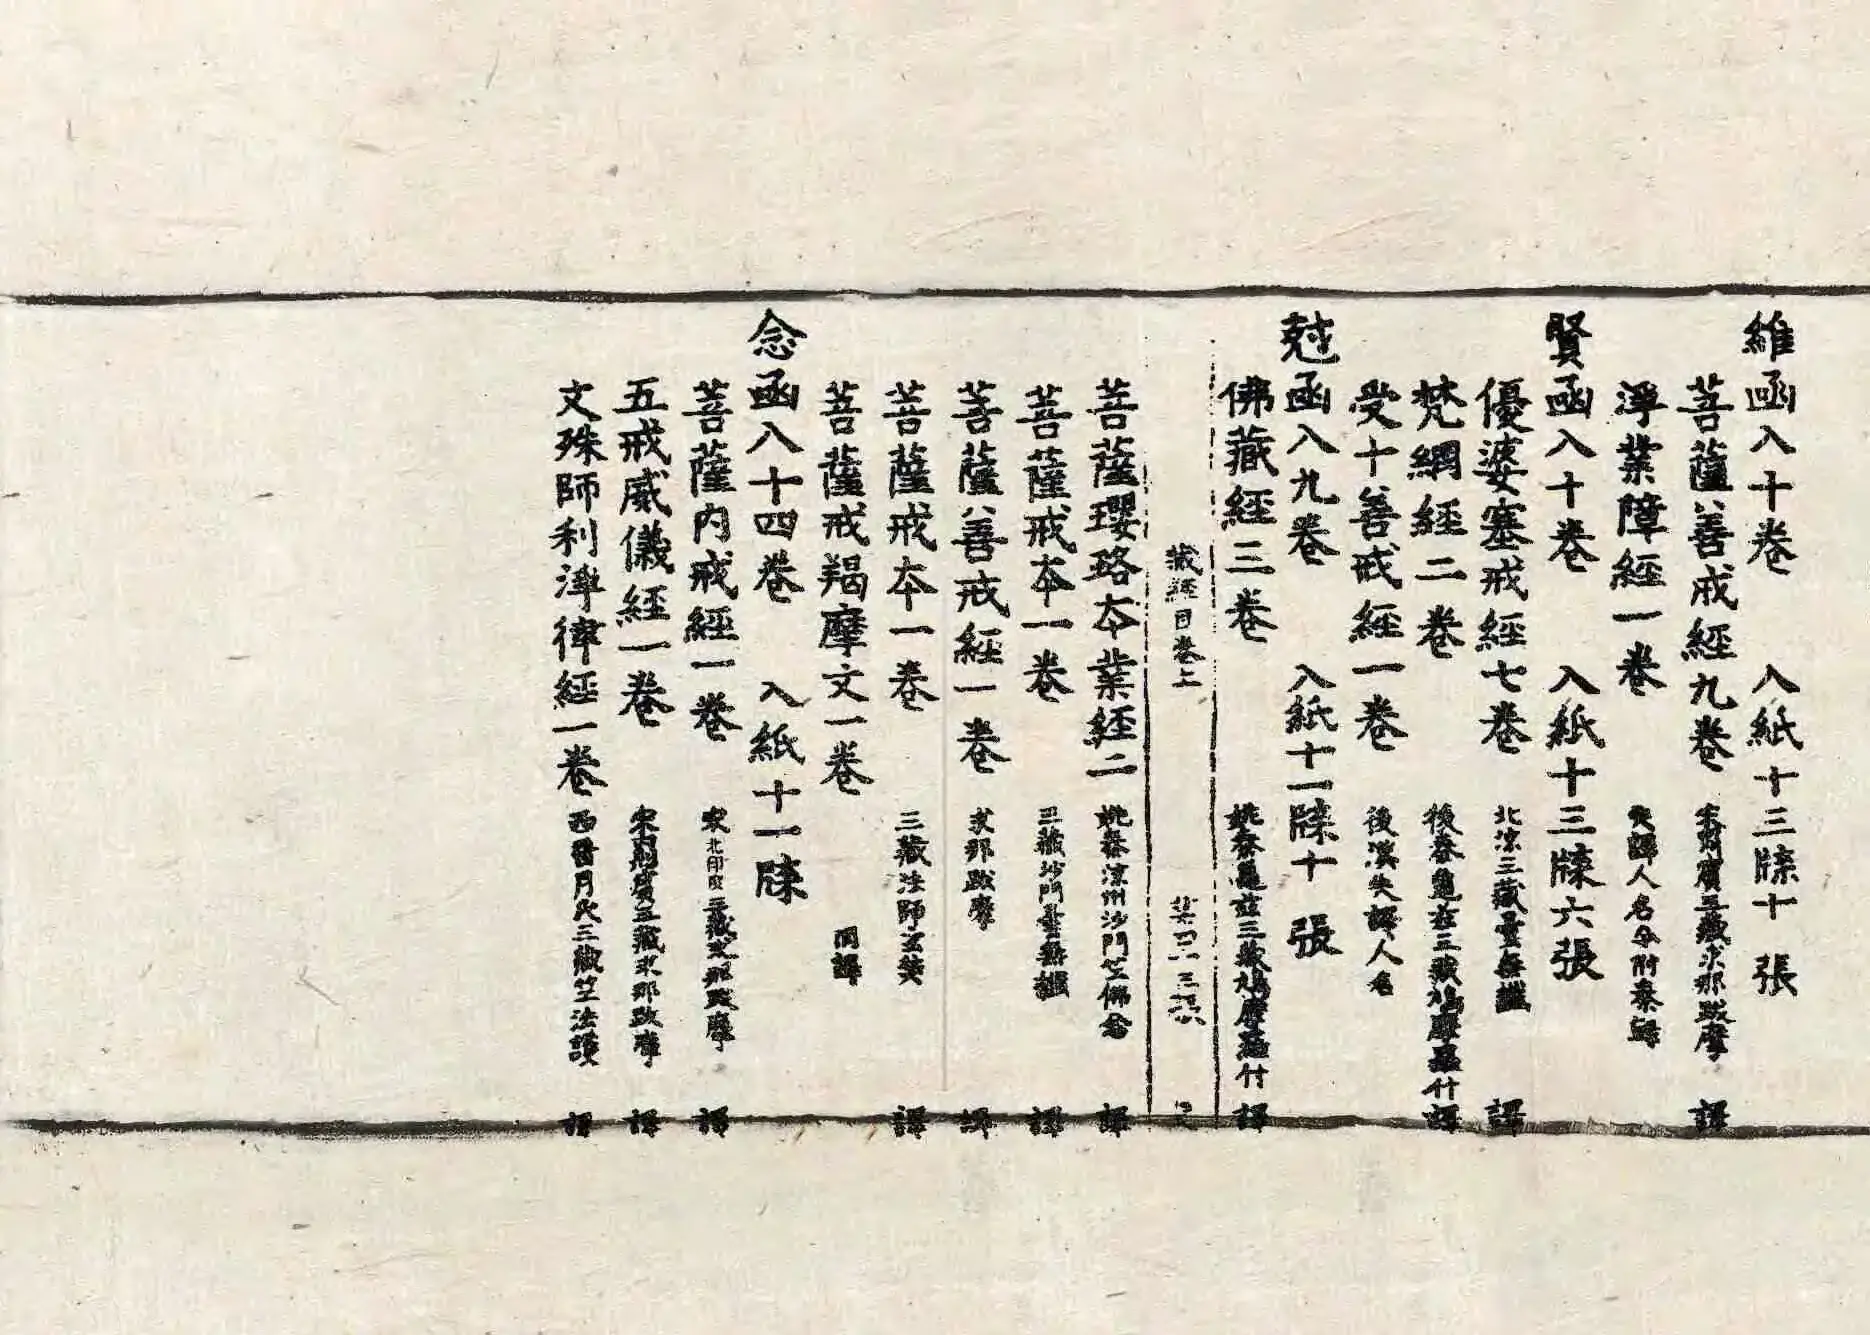 維函入十卷 入紙十三牒十張
菩薩善戒經九卷 宋罽賓三藏求那跋摩 譯
淨業障經一卷 失譯人名今附秦録
賢函入十卷 入紙十三牒六張
優婆塞戒經七卷 北涼三藏曇無讖 譯
梵網經二卷 後秦龜茲三藏鳩摩羅什譯
受十善戒經一卷 後漢失譯人名
尅函入九卷 入紙十一牒十張
佛藏經三卷 姚秦龜茲三藏鳩摩羅什 譯
藏經目卷上 三張
菩薩瓔珞本業經二 姚秦涼州沙門竺佛念 譯
菩薩戒本一卷 三藏沙門曇無讖 譯
菩薩善戒經一卷 求那跋摩 譯
菩薩戒本一卷 三藏法師玄奘 譯
菩薩戒羯摩文一卷 同譯
念函入十四卷 入紙十一牒
菩薩內戒經一卷 宋北印度三藏求那跋摩 譯
五戒威儀經一卷 宋罽賓三藏求那跋摩 譯
文殊師利淨律經一卷 西晉月氏三藏竺法護 譯